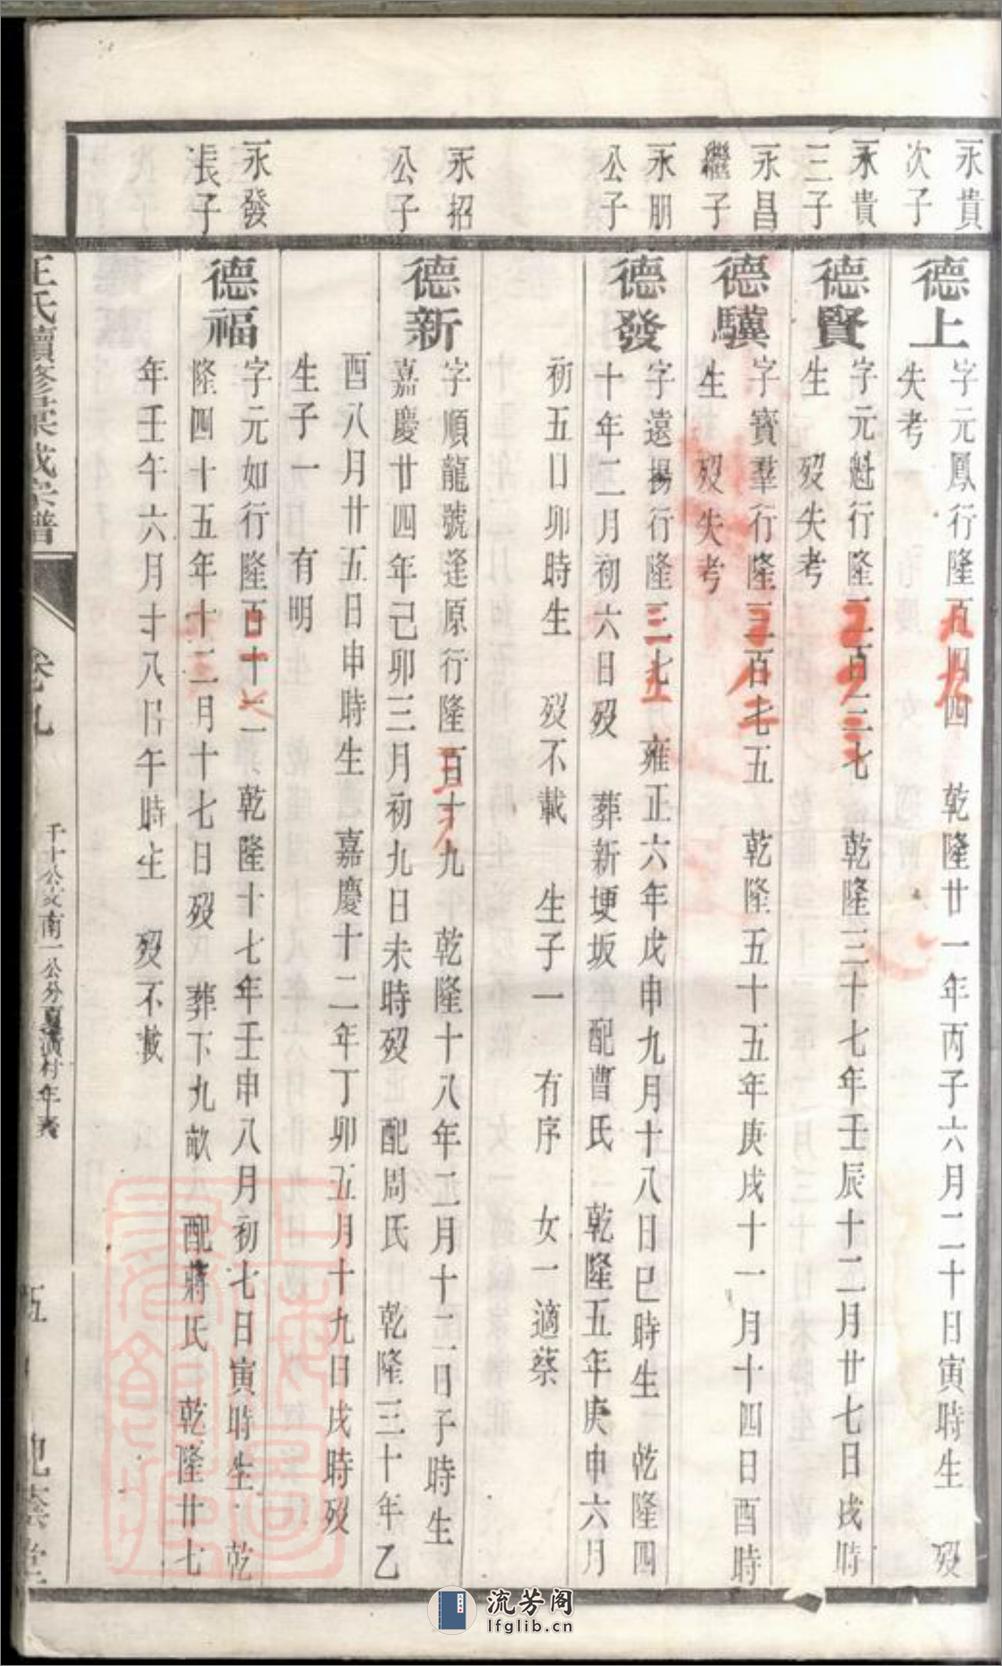 永貴
次子
德上
字元鳳行隆百四四 乾隆廿一年丙子六月二十日寅時生 歿
失考
永貴
三子
德賢
字元魁行隆二百三七 乾隆三十七年壬辰十二月廿七日戌時
生 歿失考
永昌
繼子
德驥
字寶羣行隆三百七五 乾隆五十五年庚戌十一月十四日酉時
生 歿失考
永朋
公子
德發
字遠揚行隆三七 雍正六年戊申九月十八日巳時生 乾隆四
十年二月初六日歿 葬新埂坂 配曹氏 乾隆五年庚申六月
初五日卯時生 歿不載 生子一 有序 女一適蔡
永招
公子
德新
字順龍號逢原行隆百十九 乾隆十八年二月十二日子時生
嘉慶廿四年己卯三月初九日未時歿 配周氏 乾隆三十年乙
酉八月廿五日申時生 嘉慶十二年丁卯五月十九日戌時歿
生子一 有明
永發
長子
德福
字元如行隆百十二 乾隆十七年壬申八月初七日寅時生 乾
隆四十五年十二月十七日歿 葬下九畝 配蔣氏 乾隆廿七
年壬午六月十八日午時生 歿不載
王氏續修宗譜
卷九
千十公支南一公分 村年表
五
流芳阁
lfglib.cn